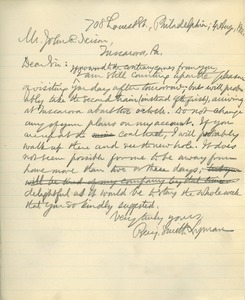 708 Locust St., Philadelphia, Aug.
Mr. John R.
Tuscarora, Pa.
Dear Sir:
I am still counting upon the pleasure
of visiting you day after tomorrow; but will prob-
ably take the second train (instead of the first), arriving
at Tuscarora about o'clock. Do not change
any of your plans on my account. If you
are up at the coal bed, I will probably
walk up there and see the new hole. It does
not seem possible for me to be away from
home more than two or three days,
will be kind of my company by that time
delightful as it would be to stay the whole week
that you so kindly suggested.
Very truly yours,
Benj. Smith Lyman.